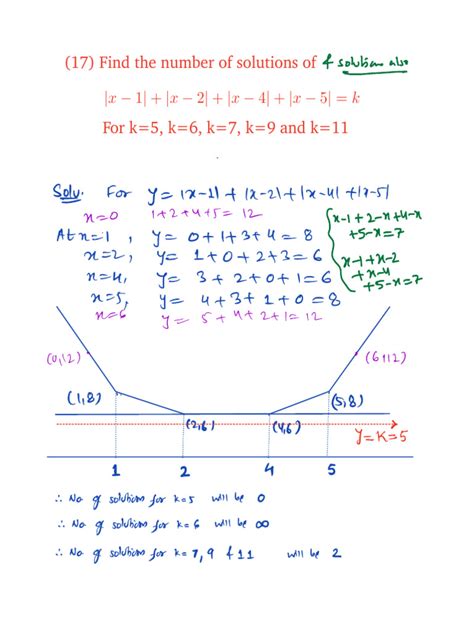 (17) Find the number of solutions of & solutions also
|x − 1| + |x − 2| + |x − 4| + |x − 5| = k
For k=5, k=6, k=7, k=9 and k=11
Solv. For y = |x-1| + |x-2| + |x-4| + |x-5|
x=0 1+2+4+5 = 12
At x=1, y = 0+1+3+4 = 8
x=2, y = 1+0+2+3 = 6
x=4, y = 3+2+0+1 = 6
x=5, y = 4+3+1+0 = 8
x=6 y = 5+4+2+1 = 12
x-1+2-x+4-x
+5-x=7
x-1+x-2
+x-4
+5-x=7
(0,12)
(6,12)
(1,8)
(5,8)
(2,6)
(4,6)
y=k=5
1 2 4 5
∴ No of solutions for k=5 will be 0
∴ No of solutions for k=6 will be ∞
∴ No of solutions for k=7,9 & 11 will be 2